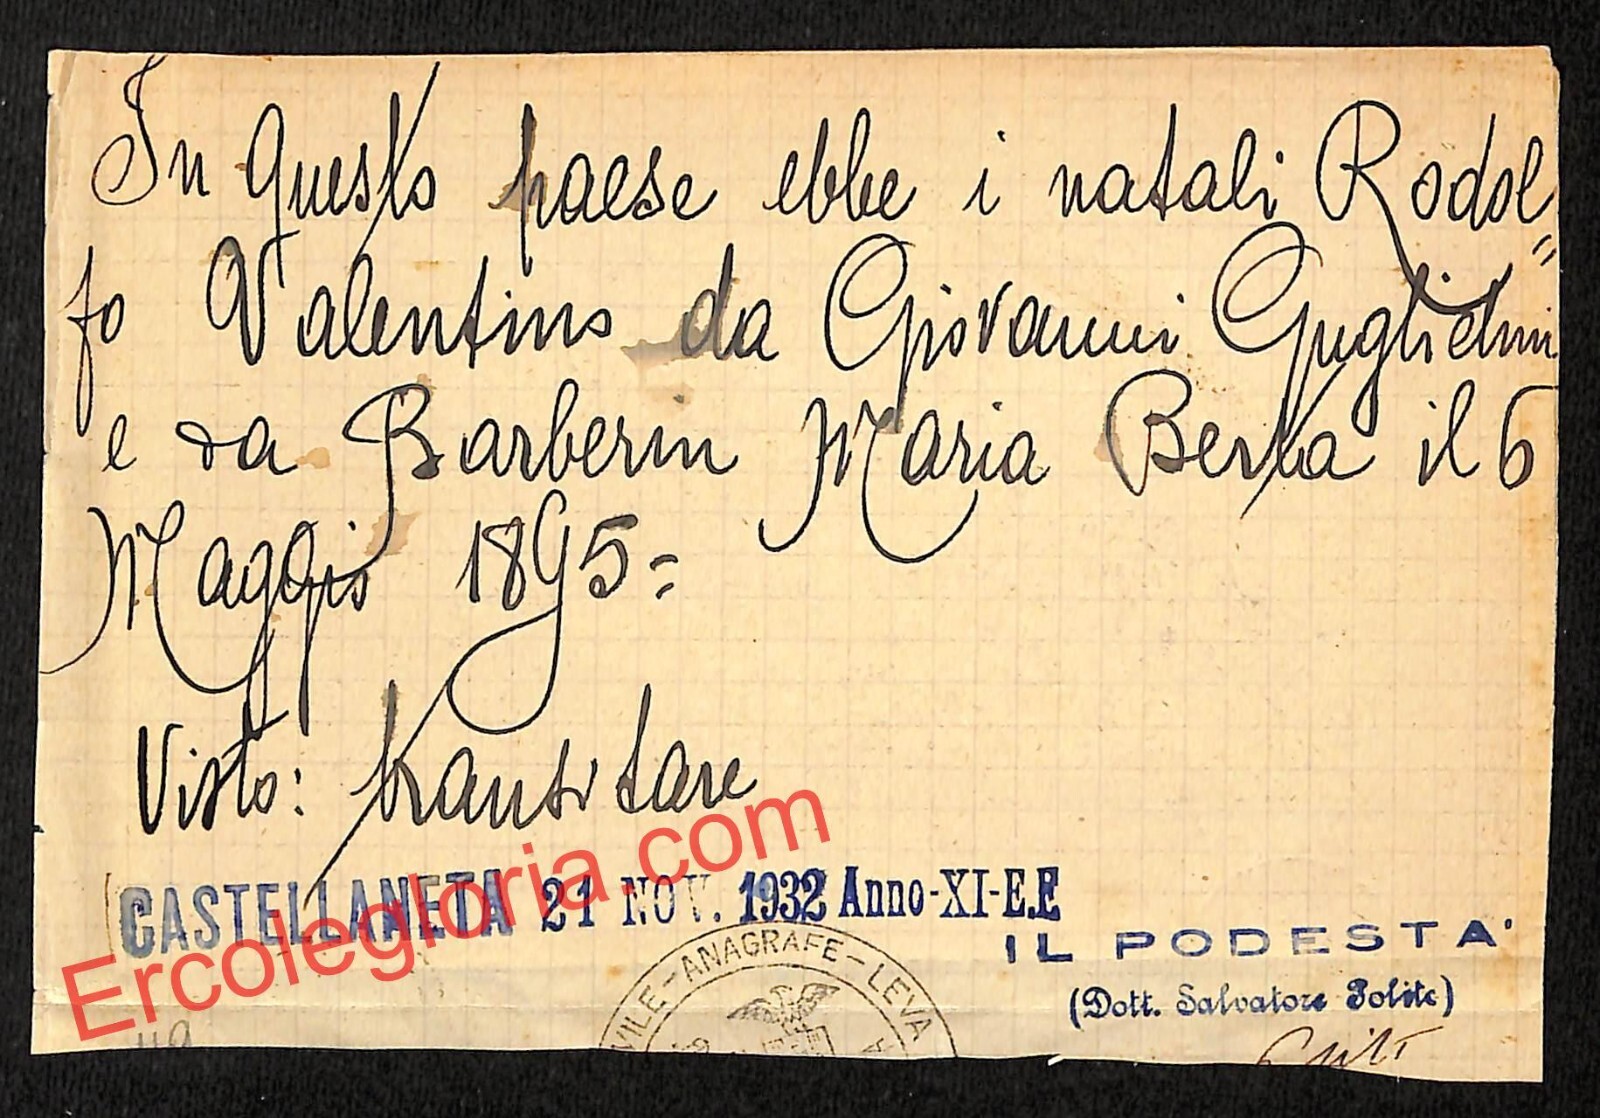 In questo paese ebbe i natali Rodol=
fo Valentino da Giovanni Guglielmi
e da Barberin Maria Berta il 6
Maggio 1895=
Visto: transitare
CASTELLANETA 21 NOV. 1932 Anno-XI-E.F
IL PODESTA'
(Dott. Salvatore Polito)
VILE-ANAGRAFE-LEVA
Ercolegloria.com